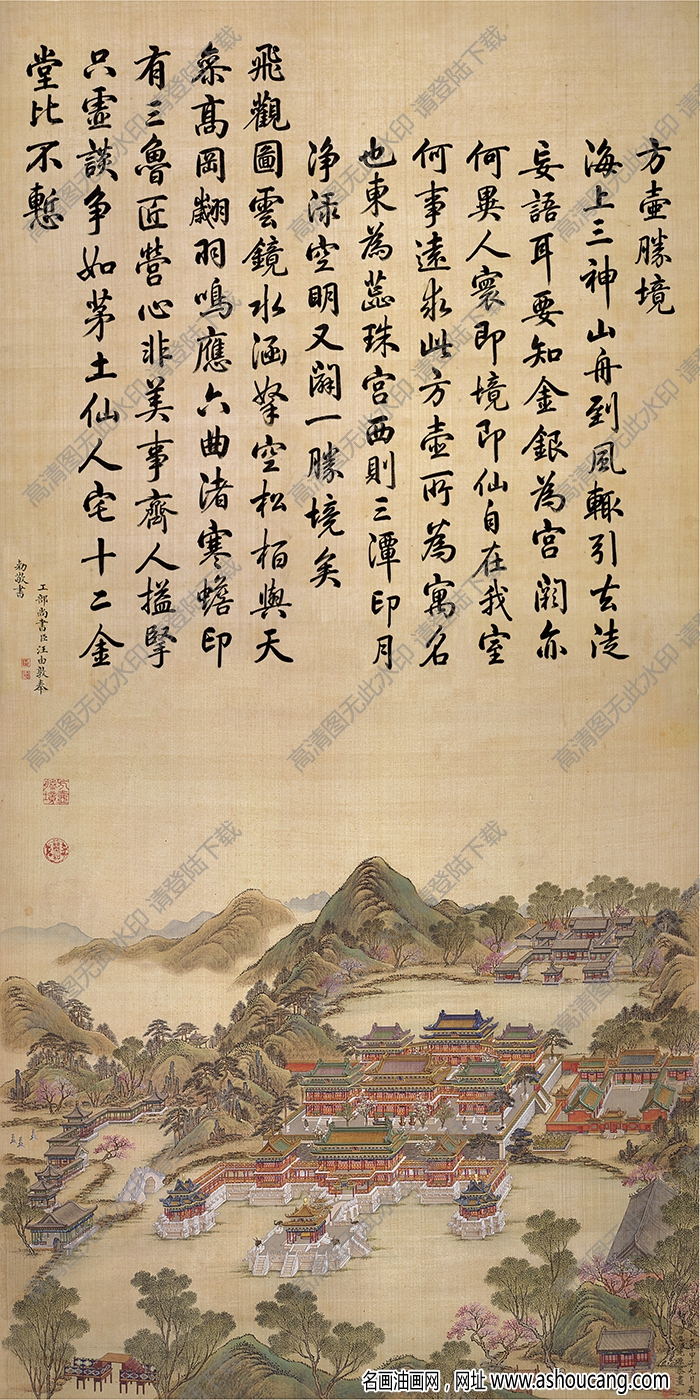 方壺勝境
海上三神山舟到風輒引去徒
妄語耳要知金銀為宮闕亦
何異人寰即境即仙自在我室
何事遠求此方壺所為寓名
也東為蕊珠宮西則三潭印月
淨淥空明又闢一勝境矣
飛觀圖雲鏡水涵拏空松栢與天
叅高岡翽羽鳴應六曲渚寒蟾印
有三魯匠營心非美事齊人搤掔
只虛談争如茅土仙人宅十二金
堂比不慙
工部尚書臣汪由敦奉
勅敬書
高清图无此水印 请登陆下载
名画油画网，网址 www.ashoucang.com